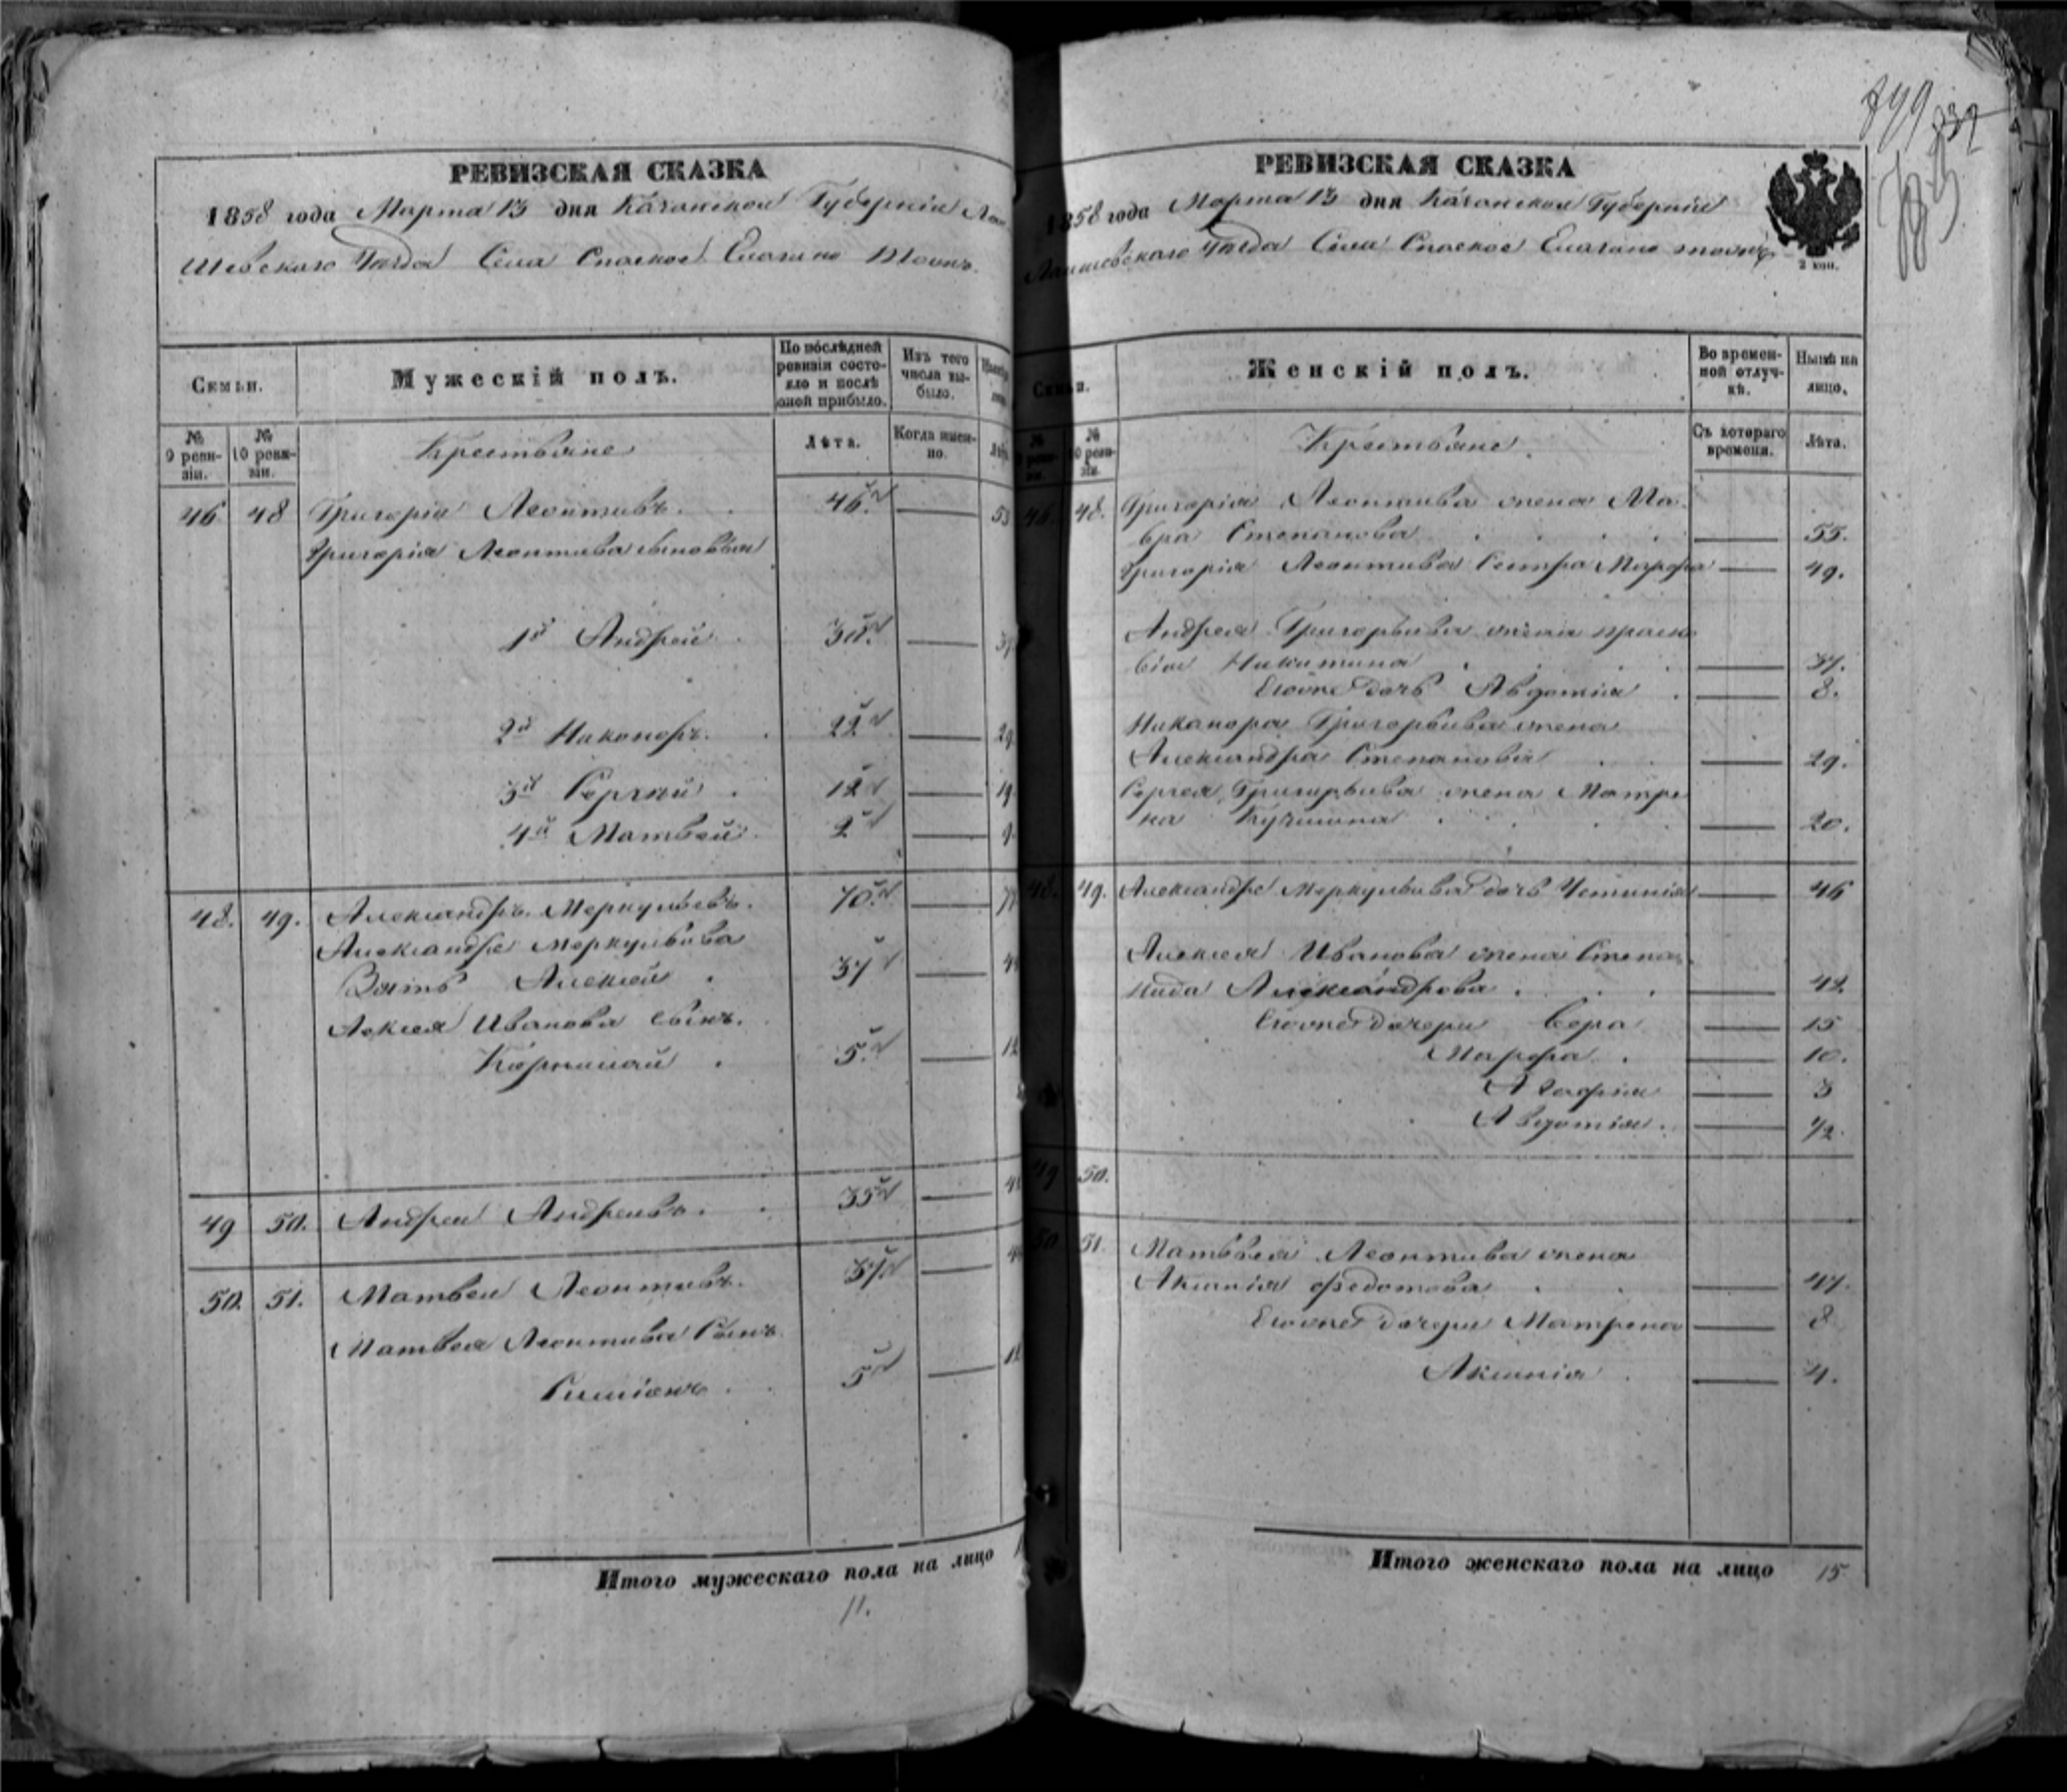 РЕВИЗСКАЯ СКАЗКА
1858 года Марта 13 дня Казанской Губерніи Лаи
шевскаго Уѣзда Села Спаское Елагино тожъ
Семьи.
Мужескій полъ.
По послѣдней ревизіи состояло и послѣ оной прибыло.
Изъ того числа выбыло.
№ 9 ревизіи.
№ 10 ревизіи.
Крестьяне
Лѣта.
Когда именно.
46 48 Григорій Леонтьевъ. 46 53
Григорія Леонтьева сыновья
1й Андрей 30 37
2й Никоноръ. 22 29
3й Сергѣй 12 19
4й Матвей 2 9
48. 49. Александръ Меркульевъ. 70
Александра Меркульева
Зять Алексей 37 44
Алексея Иванова сынъ.
5 12
49 50. Андрей Андреевъ. 35
50. 51. Матвей Леонтьевъ. 37
Матвея Леонтьева Сынъ
Симіонъ 5 12
Итого мужескаго пола на лицо
11.
849 832
РЕВИЗСКАЯ СКАЗКА
1858 года Марта 13 дня Казанской Губерніи
Лаишевскаго Уѣзда Села Спаское Елагино тожъ
2 коп.
Семьи.
Женскій полъ.
Во временной отлучкѣ.
Нынѣ на лицо.
№ 10 ревизіи.
Крестьяне.
Съ котораго времени.
Лѣта.
46. 48. Григорія Леонтьева жена Ма
вра Степанова 55.
Григорія Леонтьева Сестра Марфа 49.
Андрея Григорьева жена праско
вія Никитина 37.
Егоже дочь Авдотія 8.
Никанора Григорьева жена
Александра Степанова 29.
Сергея Григорьева жена Матре
на Кузмина 20.
48. 49. Александра Меркульева дочь Устинія 46
Алексея Иванова жена Степа
нида Александрова 42.
Егоже дочери Вера 15
Марфа 10.
Агафия 3
Авдотія. 1/2.
49 50.
50 51. Матвѣя Леонтьева жена
Аксинія Федотова 47.
Егоже дочери Матрена 8
Аксинія 4.
Итого женскаго пола на лицо 15